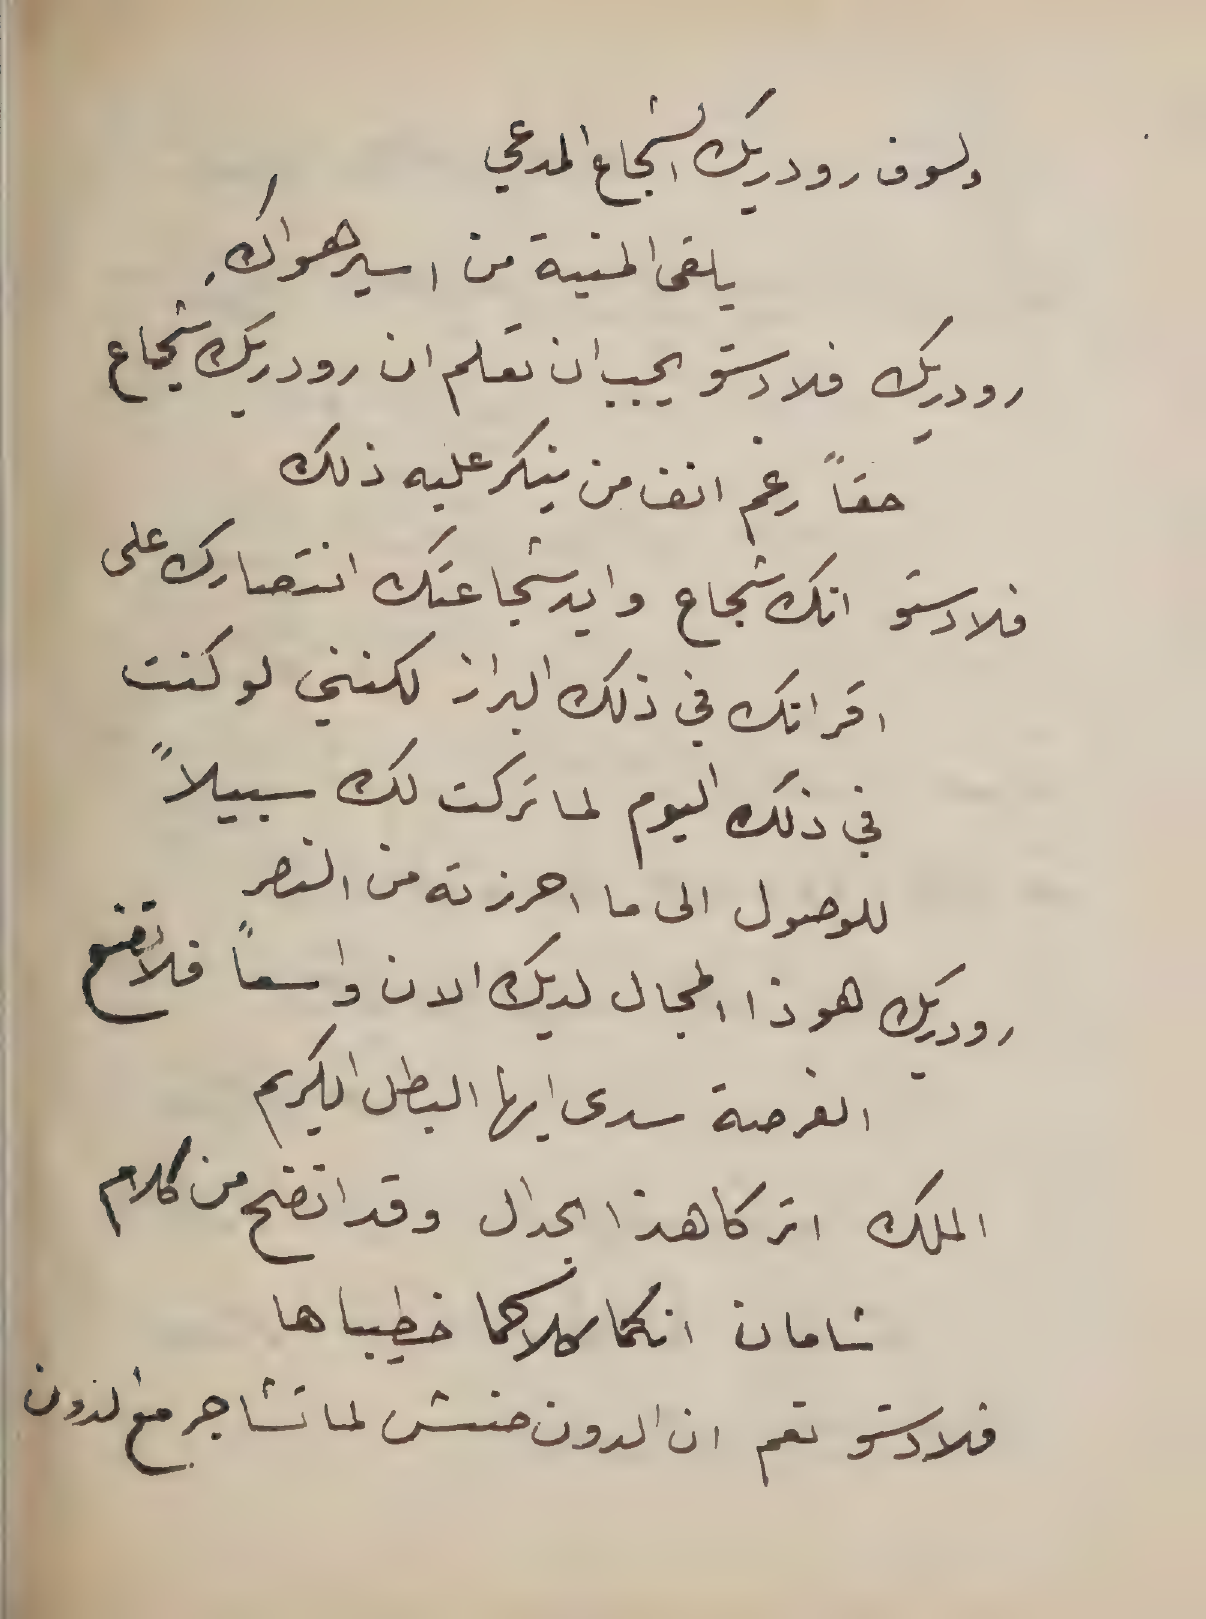 ولسوف رودريك الشجاع المدعي
يلقى المنية من اسير هواك.
رودريك فلادستو يجب ان تعلم ان رودريك شجاع
حقاً رغم انف من ينكر عليه ذلك
فلادستو انك شجاع وايد شجاعتك انتصارك على
اقرانك في ذلك البراز لكنني لو كنت
في ذلك اليوم لما تركت لك سبيلاً
للوصول الى ما احرزته من النصر
رودريك هوذا المجال لديك الان واسعاً فلا تضع
الفرصة سدى ايها البطل الكريم
الملك اتركا هذا الجدال وقد اتضح من كلام
شامان انكما كلاكما خطيباها
فلادستو نعم ان الدون حنتش لما تشاجر مع الدون